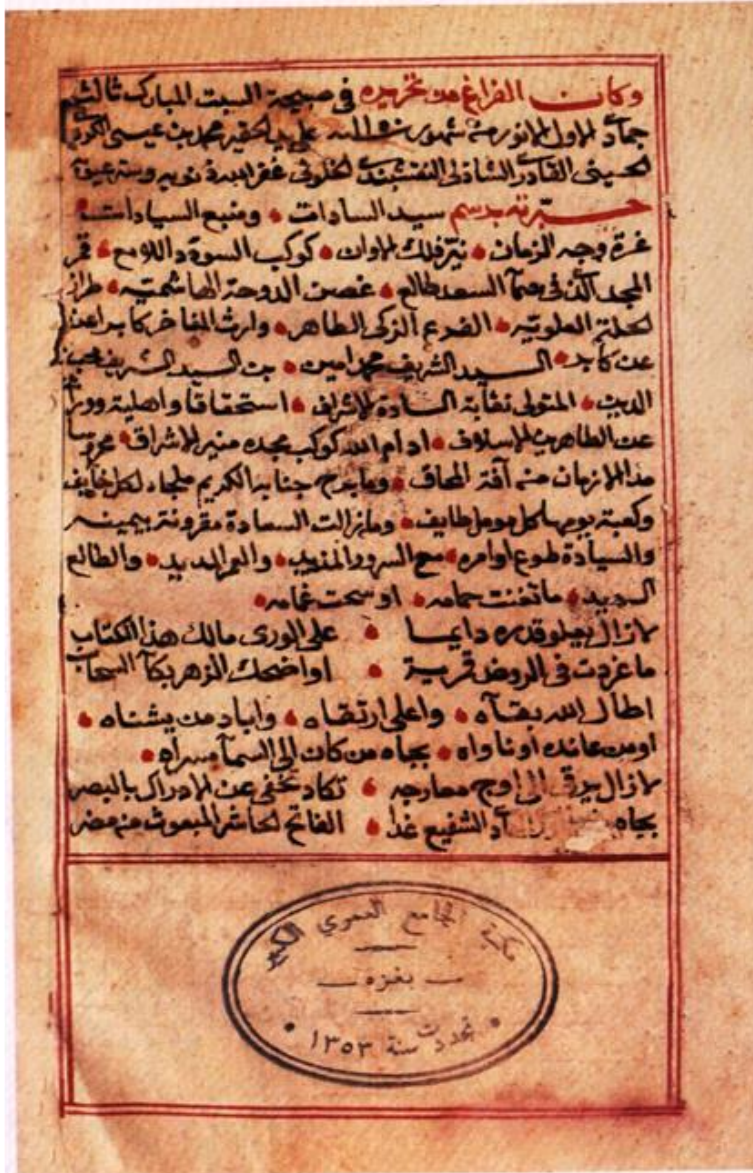 وكان الفراغ من تحريره في صبيحة السبت المبارك ثالث
جمادى الاول من شهور على يد الحقير محمد بن عيسى
الحسيني القادري الشاذلي النقشبندي الخلوتي غفر الله ذنوبه وستر عيوبه
برسم سيد السادات ومنبع السيادات
غرة وجه الزمان نير فلك الاوان كوكب السودد اللامع قمر
المجد الذي في سما السعد طالع غصن الدوحة الهاشمية طراز
الحلة العلوية الفرع الزكي الطاهر وارث المفاخر كابرا عن
عن كابر السيد الشريف محمد امين بن السيد الشريف محب
الدين المتولي نقابة السادة الاشراف استحقاقا واهلية
عن الطاهرين الاسلاف ادام الله كوكب مجده منير الاشراق
مدا الازمان من آفة المحاق وما برح جنابه الكريم ملجاء لكل خايف
وكعبة يومها كل مومل طايف وما زالت السعادة مقرونة بيمينه
والسيادة طوع اوامره مع السرور المزيد والعمر المديد والطالع
السعيد ما تغنت حمامه او سحت غمامه
لا زال يعلو قدره دايما على الورى مالك هذا الكتاب
ما غردت في الروض قرية او اضحك الزهر بكآ السحاب
اطال الله بقآه واعلى ارتقاه واباد من يشناه
او من عانده او ناواه بجاه من كان الى السمآ مسراه
لا زال يرقى الى اوج معارجه تكاد تخفى عن الادراك بالبصر
بجاه الشفيع غدا الفاتح الحاشر المبعوث من مضر
مكتبة الجامع العمري الكبير
بغزه
تجددت سنة ١٣٥٣